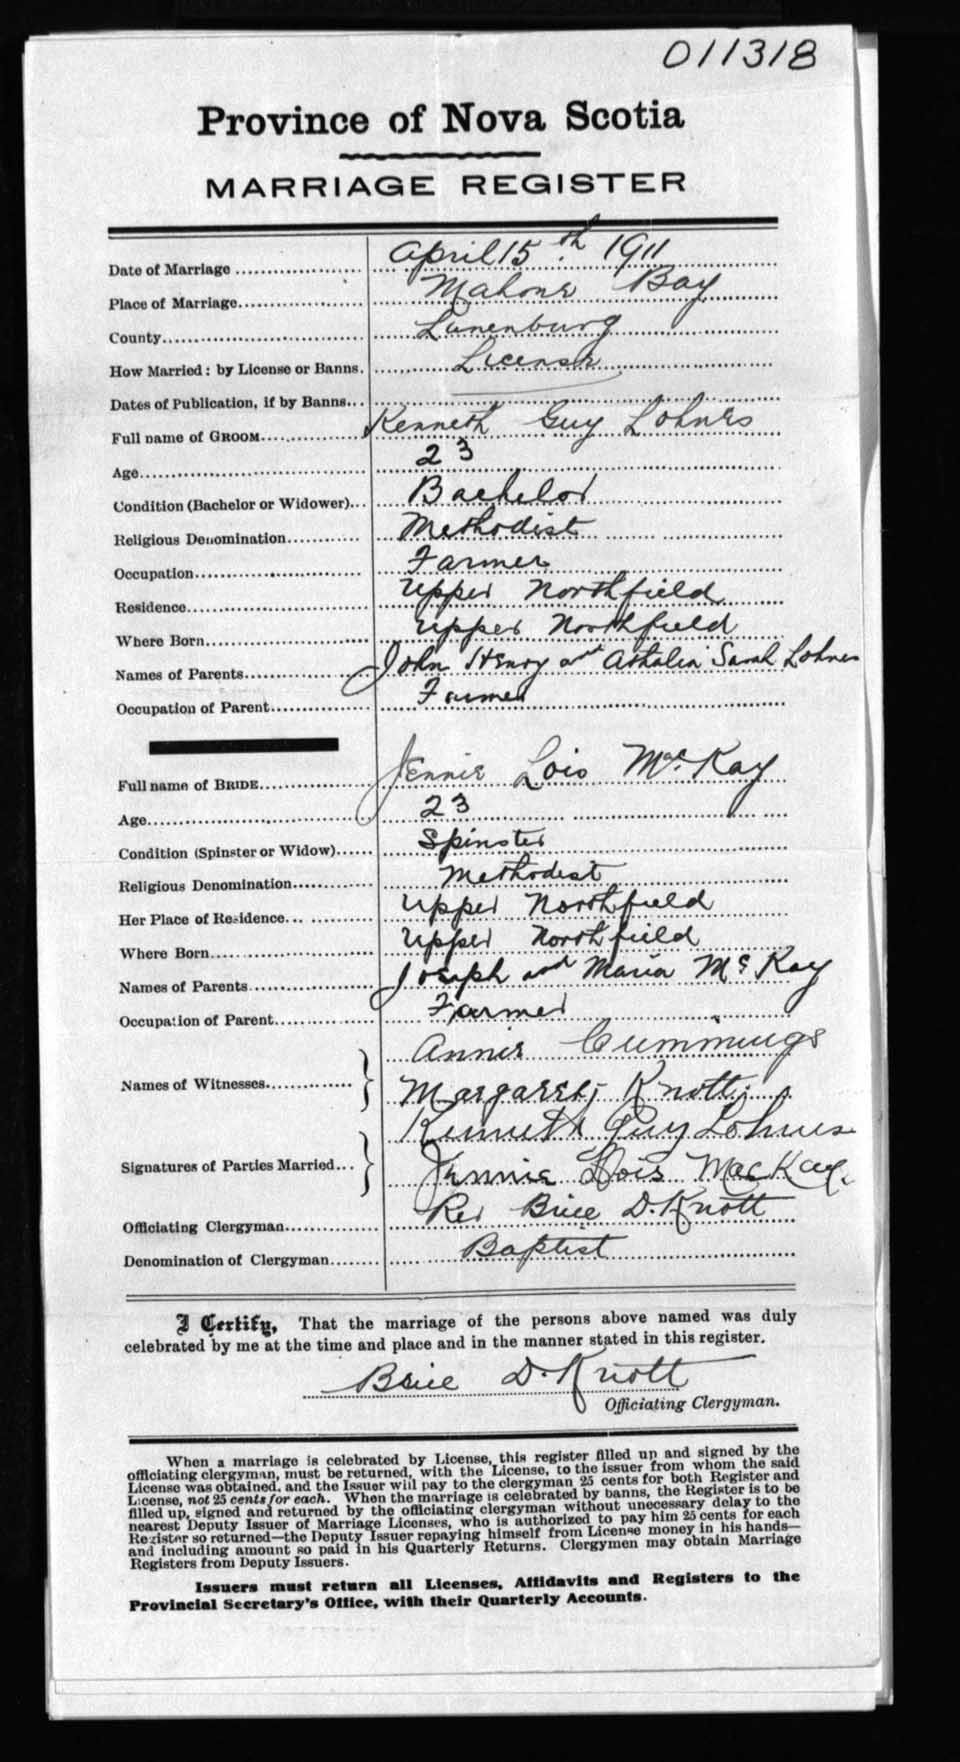 011318
Province of Nova Scotia
MARRIAGE REGISTER
Date of Marriage April 15th 1911
Place of Marriage Mahone Bay
County Lunenburg
How Married: by License or Banns. License
Dates of Publication, if by Banns
Full name of GROOM Kenneth Guy Lohnes
Age 23
Condition (Bachelor or Widower) Bachelor
Religious Denomination Methodist
Occupation Farmer
Residence Upper Northfield
Where Born Upper Northfield
Names of Parents John Henry and Athalia Sarah Lohnes
Occupation of Parent Farmer
Full name of BRIDE Jennie Lois McKay
Age 23
Condition (Spinster or Widow) Spinster
Religious Denomination Methodist
Her Place of Residence Upper Northfield
Where Born Upper Northfield
Names of Parents Joseph and Maria McKay
Occupation of Parent Farmer
Annie Cummings
Names of Witnesses Margaret Knott
Kenneth Guy Lohnes
Signatures of Parties Married Jennie Lois MacKay.
Officiating Clergyman Rev Brice D. Knott
Denomination of Clergyman Baptist
I Certify, That the marriage of the persons above named was duly
celebrated by me at the time and place and in the manner stated in this register.
Brice D. Knott
Officiating Clergyman.
When a marriage is celebrated by License, this register filled up and signed by the
officiating clergyman, must be returned, with the License, to the issuer from whom the said
License was obtained, and the Issuer will pay to the clergyman 25 cents for both Register and
License, not 25 cents for each. When the marriage is celebrated by banns, the Register is to be
filled up, signed and returned by the officiating clergyman without unnecessary delay to the
nearest Deputy Issuer of Marriage Licenses, who is authorized to pay him 25 cents for each
Register so returned—the Deputy Issuer repaying himself from License money in his hands—
and including amount so paid in his Quarterly Returns. Clergymen may obtain Marriage
Registers from Deputy Issuers.
Issuers must return all Licenses, Affidavits and Registers to the
Provincial Secretary's Office, with their Quarterly Accounts.